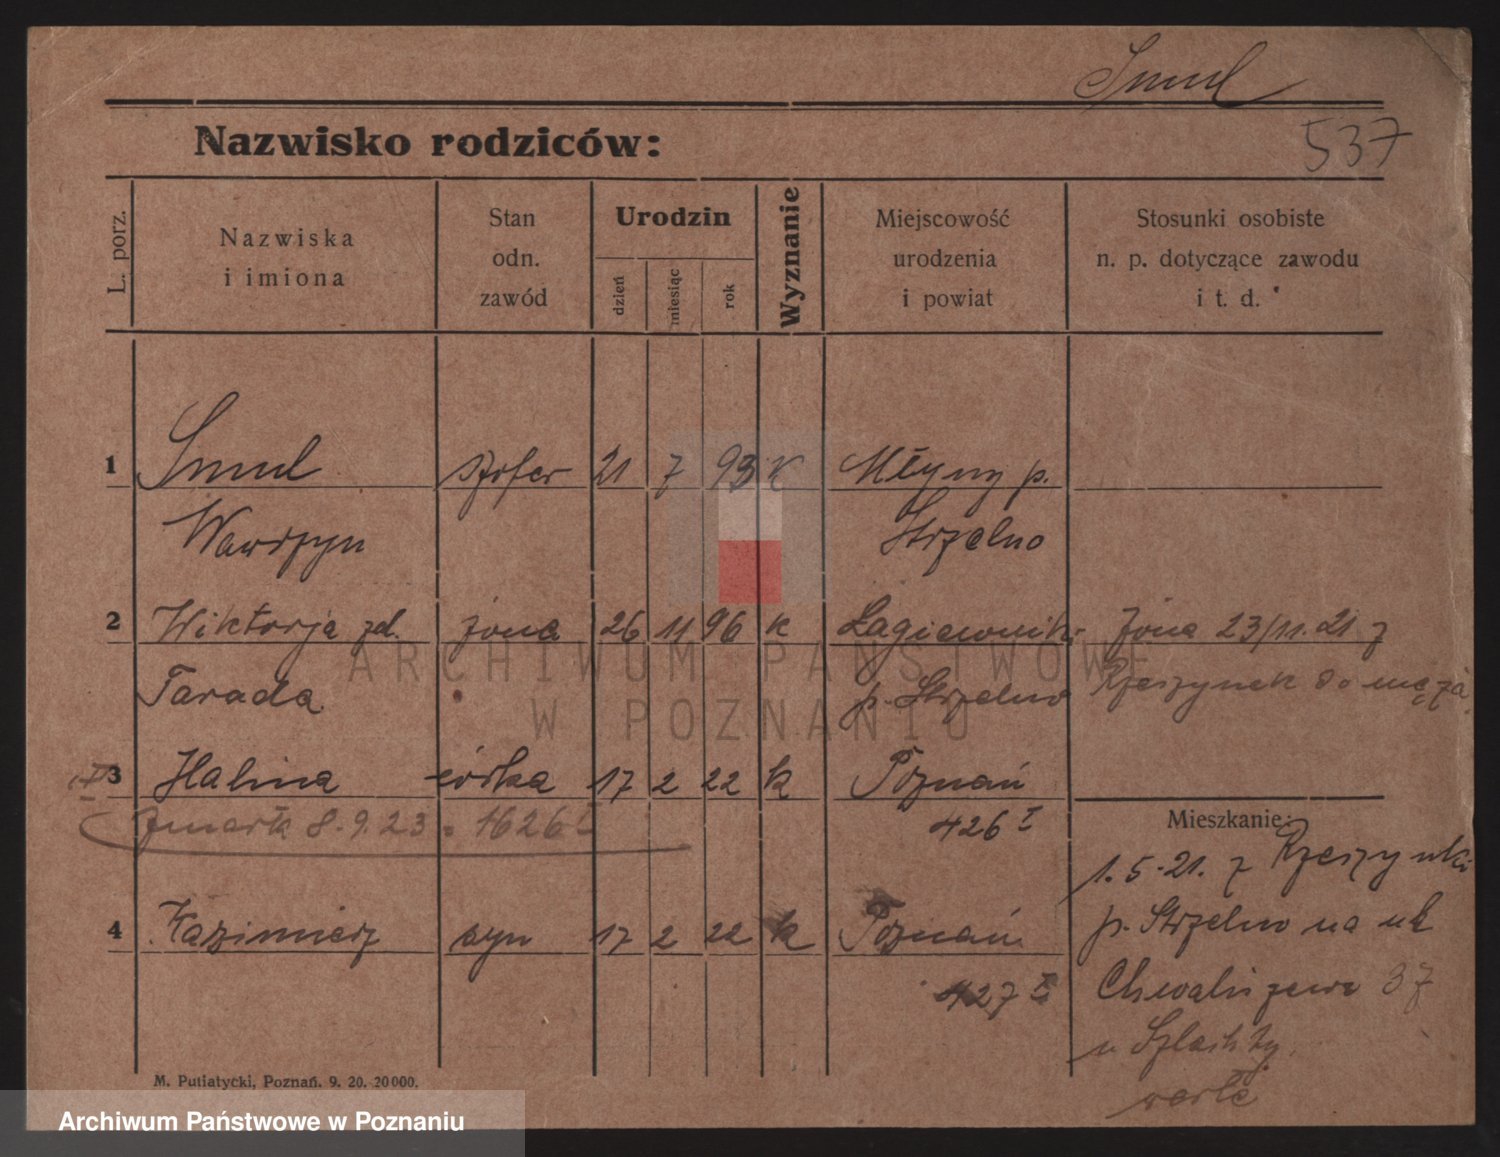 Smul
537
Nazwisko rodziców:
L. porz.
Nazwiska
i imiona
Stan
odn.
zawód
Urodzin
dzień
miesiąc
rok
Wyznanie
Miejscowość
urodzenia
i powiat
Stosunki osobiste
n. p. dotyczące zawodu
i t. d.
1 Smul szofer 21 7 93 K Młyny p.
Wawrzyn Strzelno
2 Wiktorja zd. żona 26 11 96 k Łagiewniki Żona 23/11.21 z
Tarada p. Strzelno Rzeszynek do męża
3 Halina córka 17 2 22 k Poznań
zmarła 8.9.23 1626 426 I
Mieszkanie:
1.5.21. z Rzeszynki
4 Kazimierz syn 17 2 22 k Poznań
p. Strzelno na ul
427 I
Chwaliszewo 37
u
M. Putiatycki, Poznań. 9. 20. 20000.
ARCHIWUM PAŃSTWOWE
W POZNANIU
Archiwum Państwowe w Poznaniu